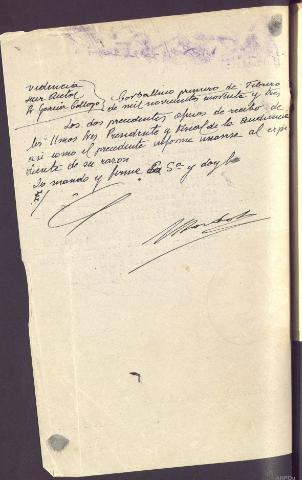 videncia
Juez Actal
A. García Collazo
Carballino primero de Febrero
de mil novecientos noventa y tres
Los dos precedentes oficios de recibo de
los Ilmos Sres Presidente y Fiscal de la Audiencia
asi como el precedente informe unanse al expe
diente de su razon
Lo mando y firma Sª y doy fe